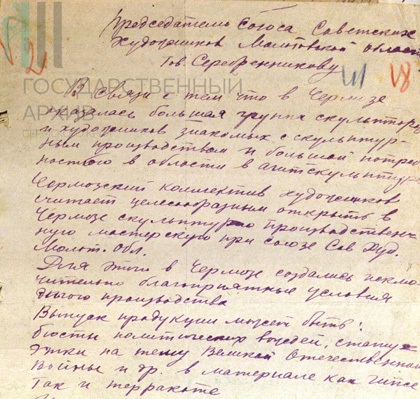 Председателю Союза Советских
Художников Молотовской области
тов Серебренникову
2
41
18
ГОСУДАРСТВЕННЫЙ
АРХИВ
В связи с тем что в Чермозе
оказалась большая группа скульпторов
и художников знакомых с скульптур-
ным производством и большой потреб-
ностью в области в агитскульптуре
Чермозский коллектив художников
считает целесообразным открыть в
Чермозе скульптурно производствен-
ную мастерскую при союзе Сов Худ.
Молот. Обл.
Для этого в Чермозе создались исклю-
чительно благоприятные условия
данного производства
Выпуск продукции может быть:
бюсты политических вождей, стату-
этки на тему Великой Отечественной
Войны и др. в материале как гипсе
так и терракоте